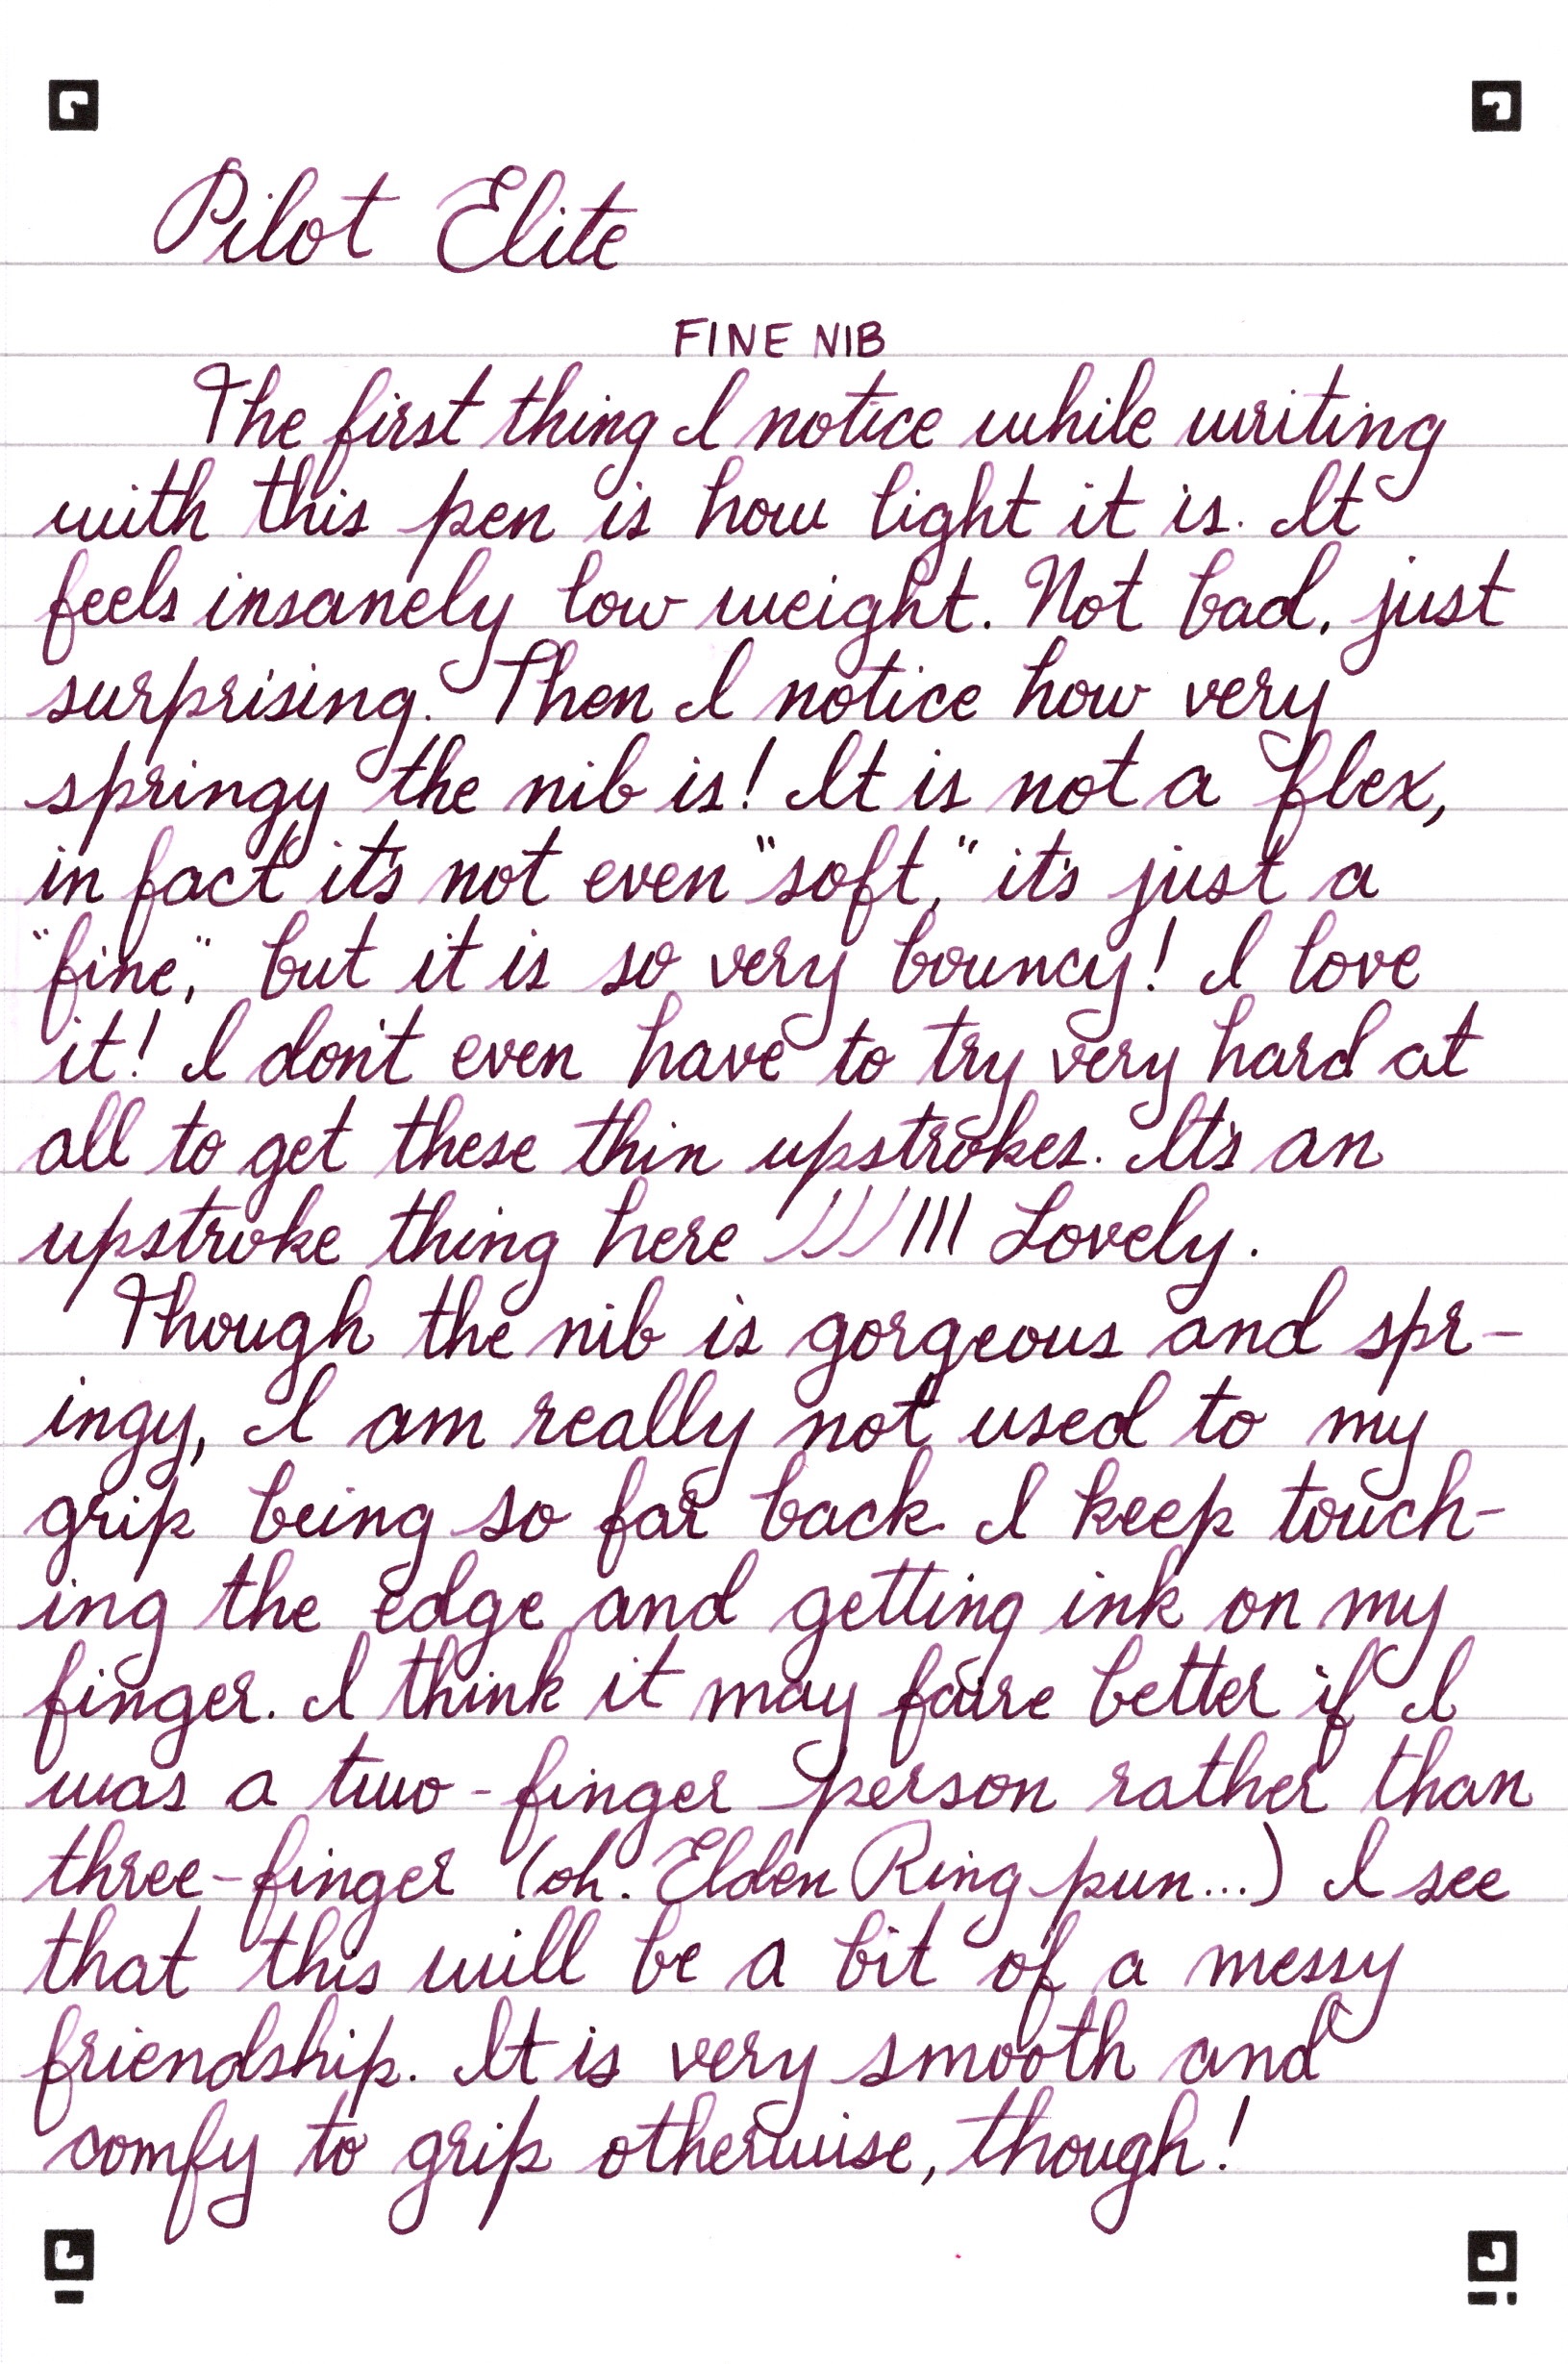 Pilot Elite
FINE NIB
The first thing I notice while writing
with this pen is how light it is. It
feels insanely low weight. Not bad, just
surprising. Then I notice how very
springy the nib is! It is not a flex,
in fact it's not even "soft," it's just a
"fine," but it is so very bouncy! I love
it! I don't even have to try very hard at
all to get these thin upstrokes. It's an
upstroke thing here ///||| Lovely.
Though the nib is gorgeous and spr-
ingy, I am really not used to my
grip being so far back. I keep touch-
ing the edge and getting ink on my
finger. I think it may faire better if I
was a two-finger person rather than
three-finger (oh. Elden Ring pun...) I see
that this will be a bit of a messy
friendship. It is very smooth and
comfy to grip otherwise, though!